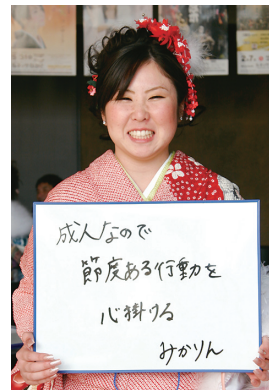 成人なので
節度ある行動を
心掛ける
みかりん